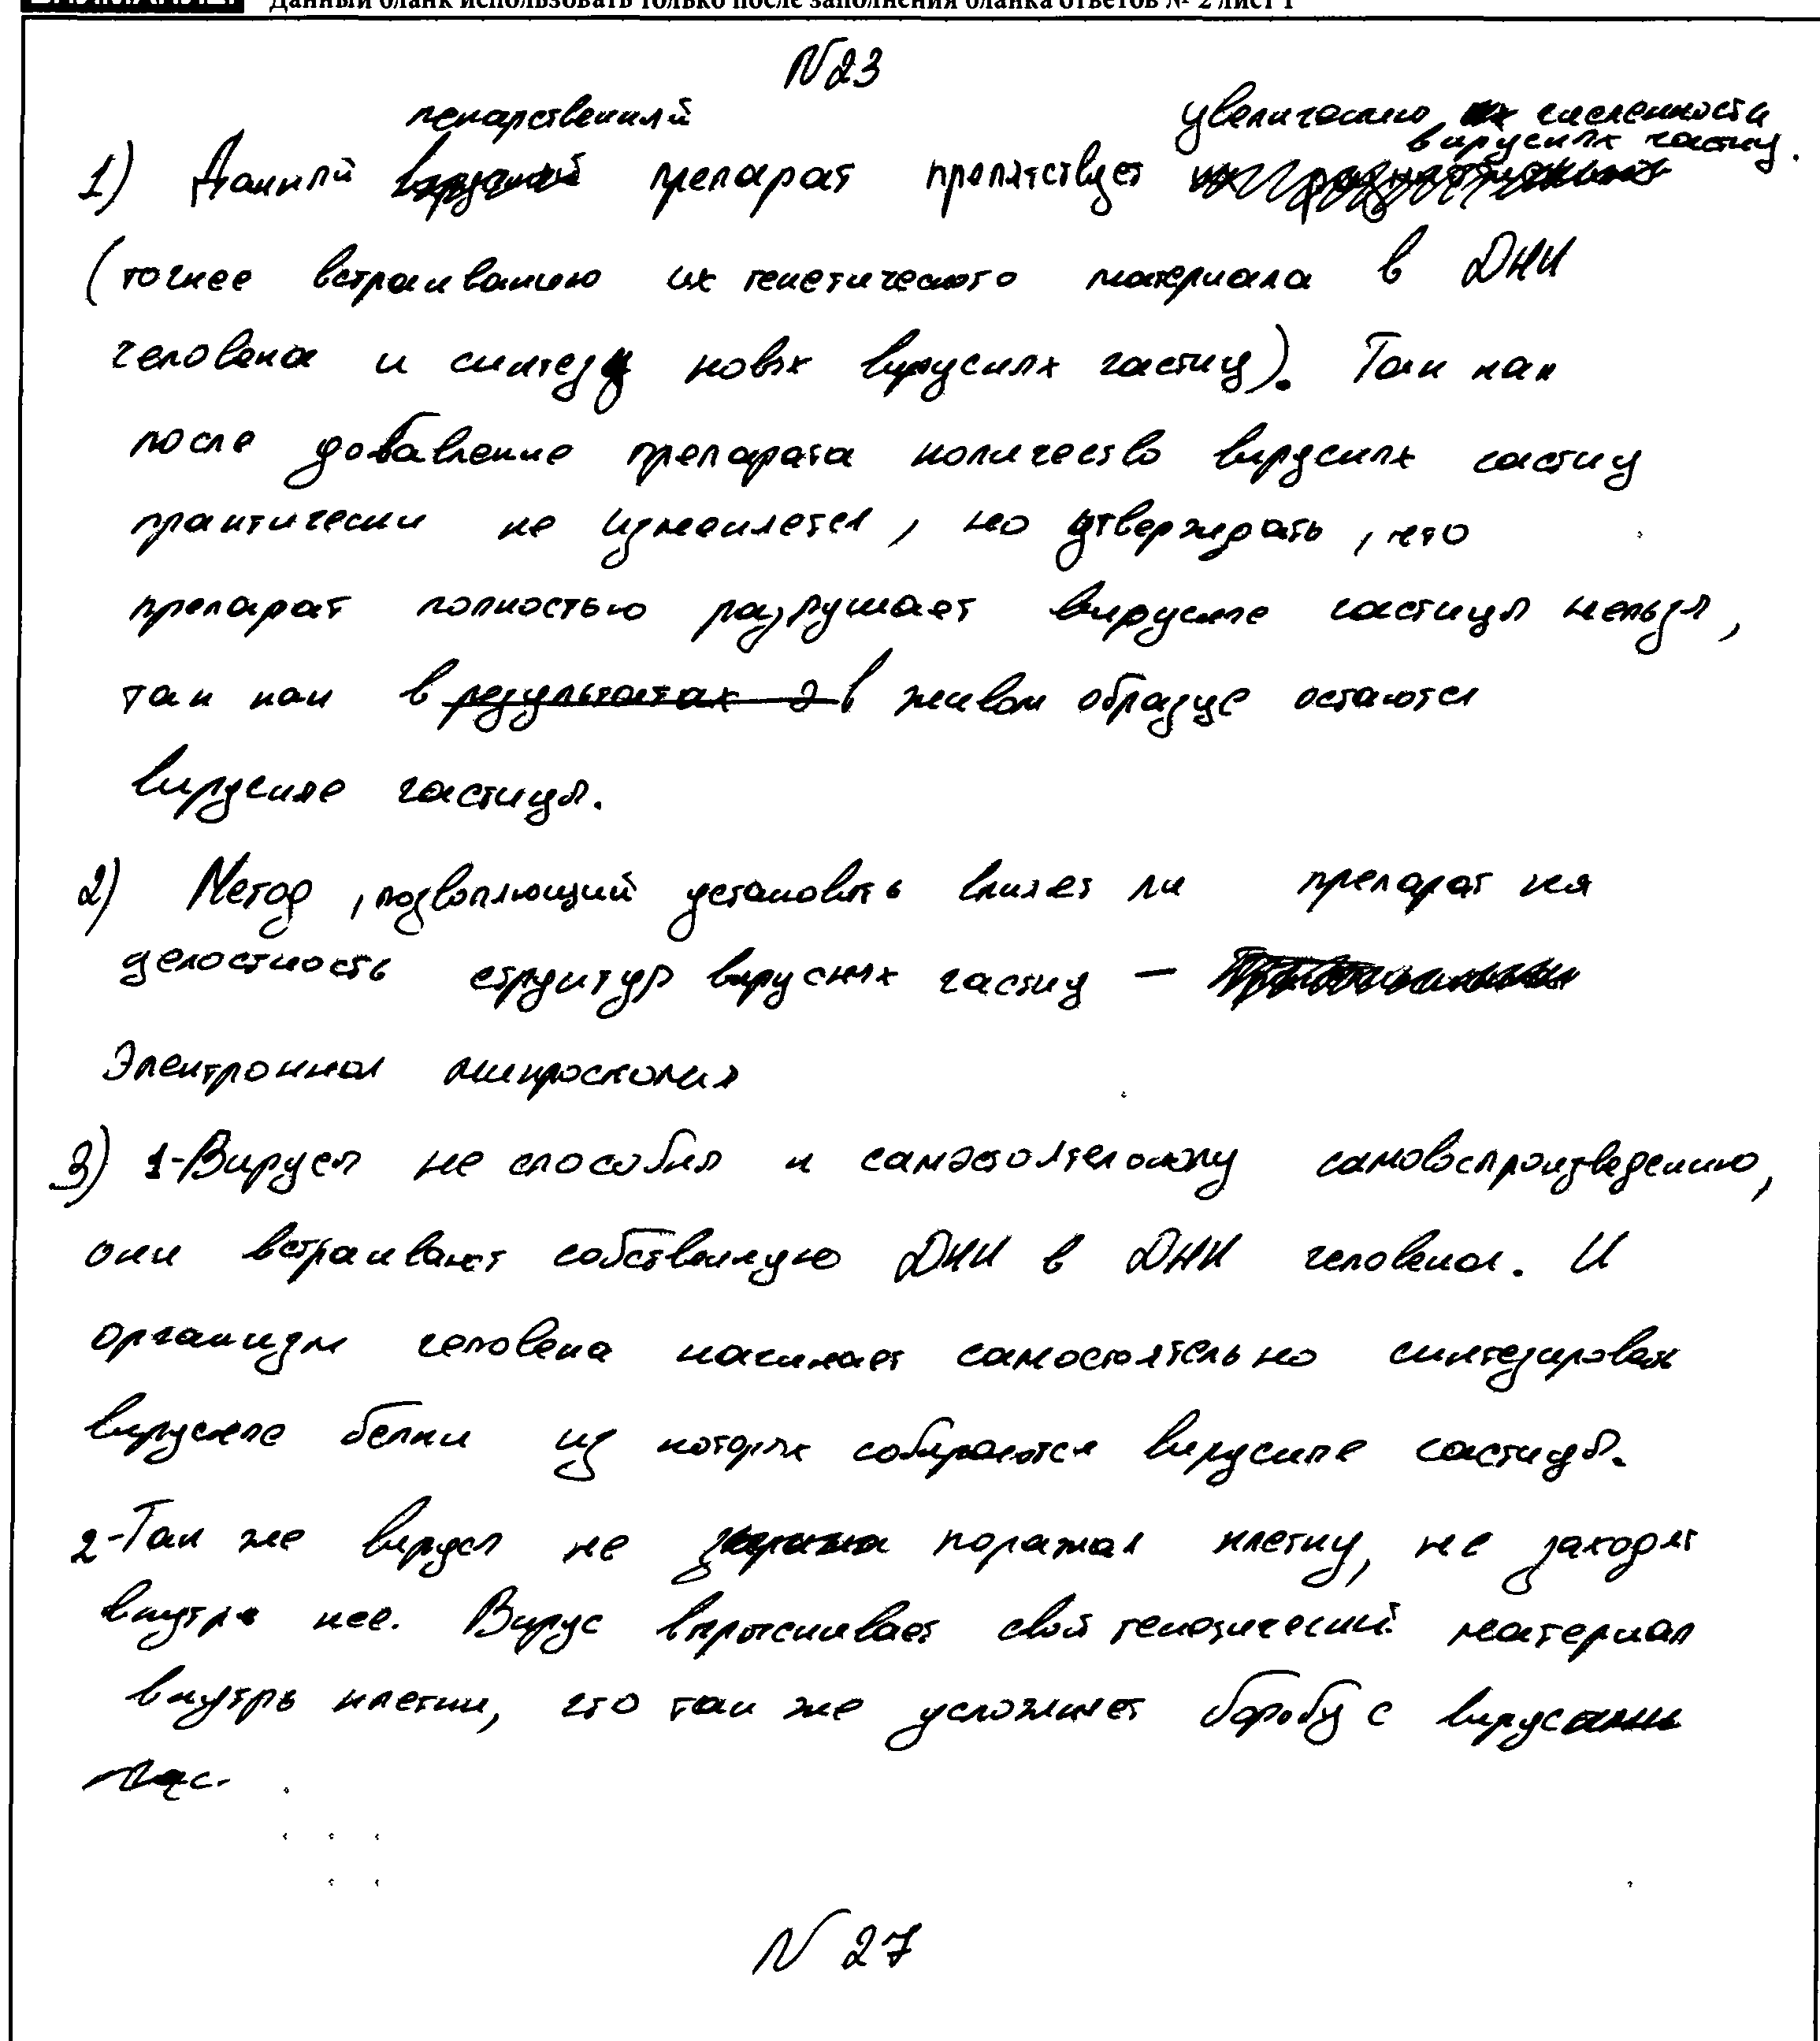 Данный бланк использовать только после заполнения бланка ответов № 2 лист 1
N23
лекарственный увеличению численности
вирусных частиц.
1) Данный препарат препятствует
(точнее встраиванию их генетического материала в ДНК
человека и синтезу новых вирусных частиц). Так как
после добавление препарата количество вирусных частиц
практически не изменяется, но утверждать, что
препарат полностью разрушает вирусные частицы нельзя,
так как в в живом образце остаются
вирусные частицы.
2) Метод, позволяющий установить влияет ли препарат на
целостность структур вирусных частиц –
Электронная микроскопия
3) 1-Вирусы не способны к самостоятельному самовоспроизведению,
они встраивают собственную ДНК в ДНК человека. И
организм человека начинает самостоятельно синтезировать
вирусные белки из которых собираются вирусные частицы.
2-Так же вирусы не поражая клетку, не заходят
внутрь нее. Вирус впрыскивает свой генетический материал
внутрь клетки, что так же усложняет борьбу с
N 27